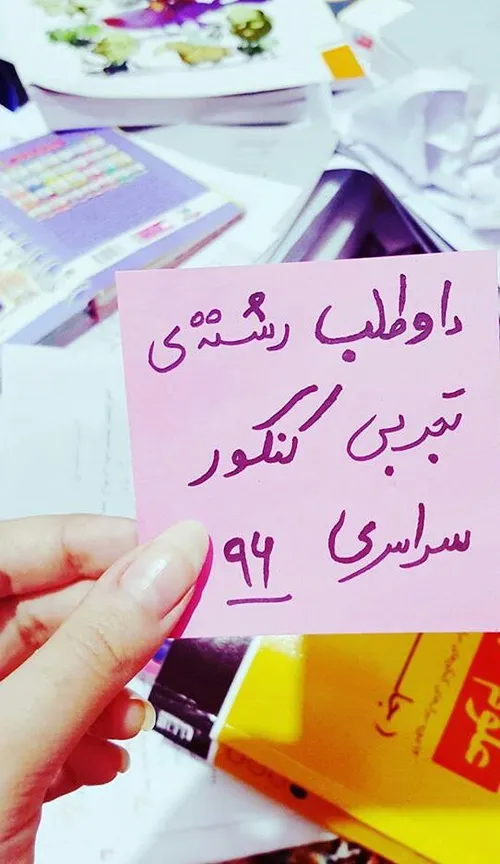 داوطلب رشته‌ی
تجربی کنکور
سراسری ۹۶
علوم